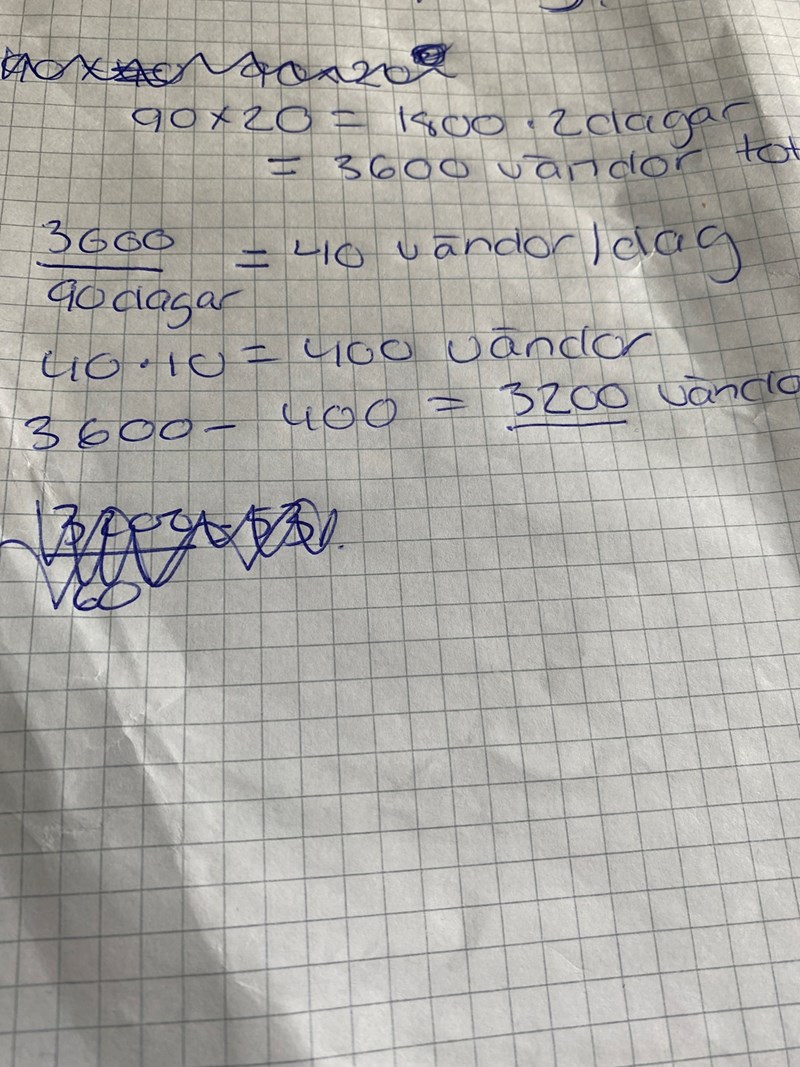 90×20 = 1800 · 2dagar
= 3600 vāndor tot
3600
90dagar
= 40 vāndor/dag
40·10 = 400 vāndor
3600 - 400 = 3200 vāndo
60